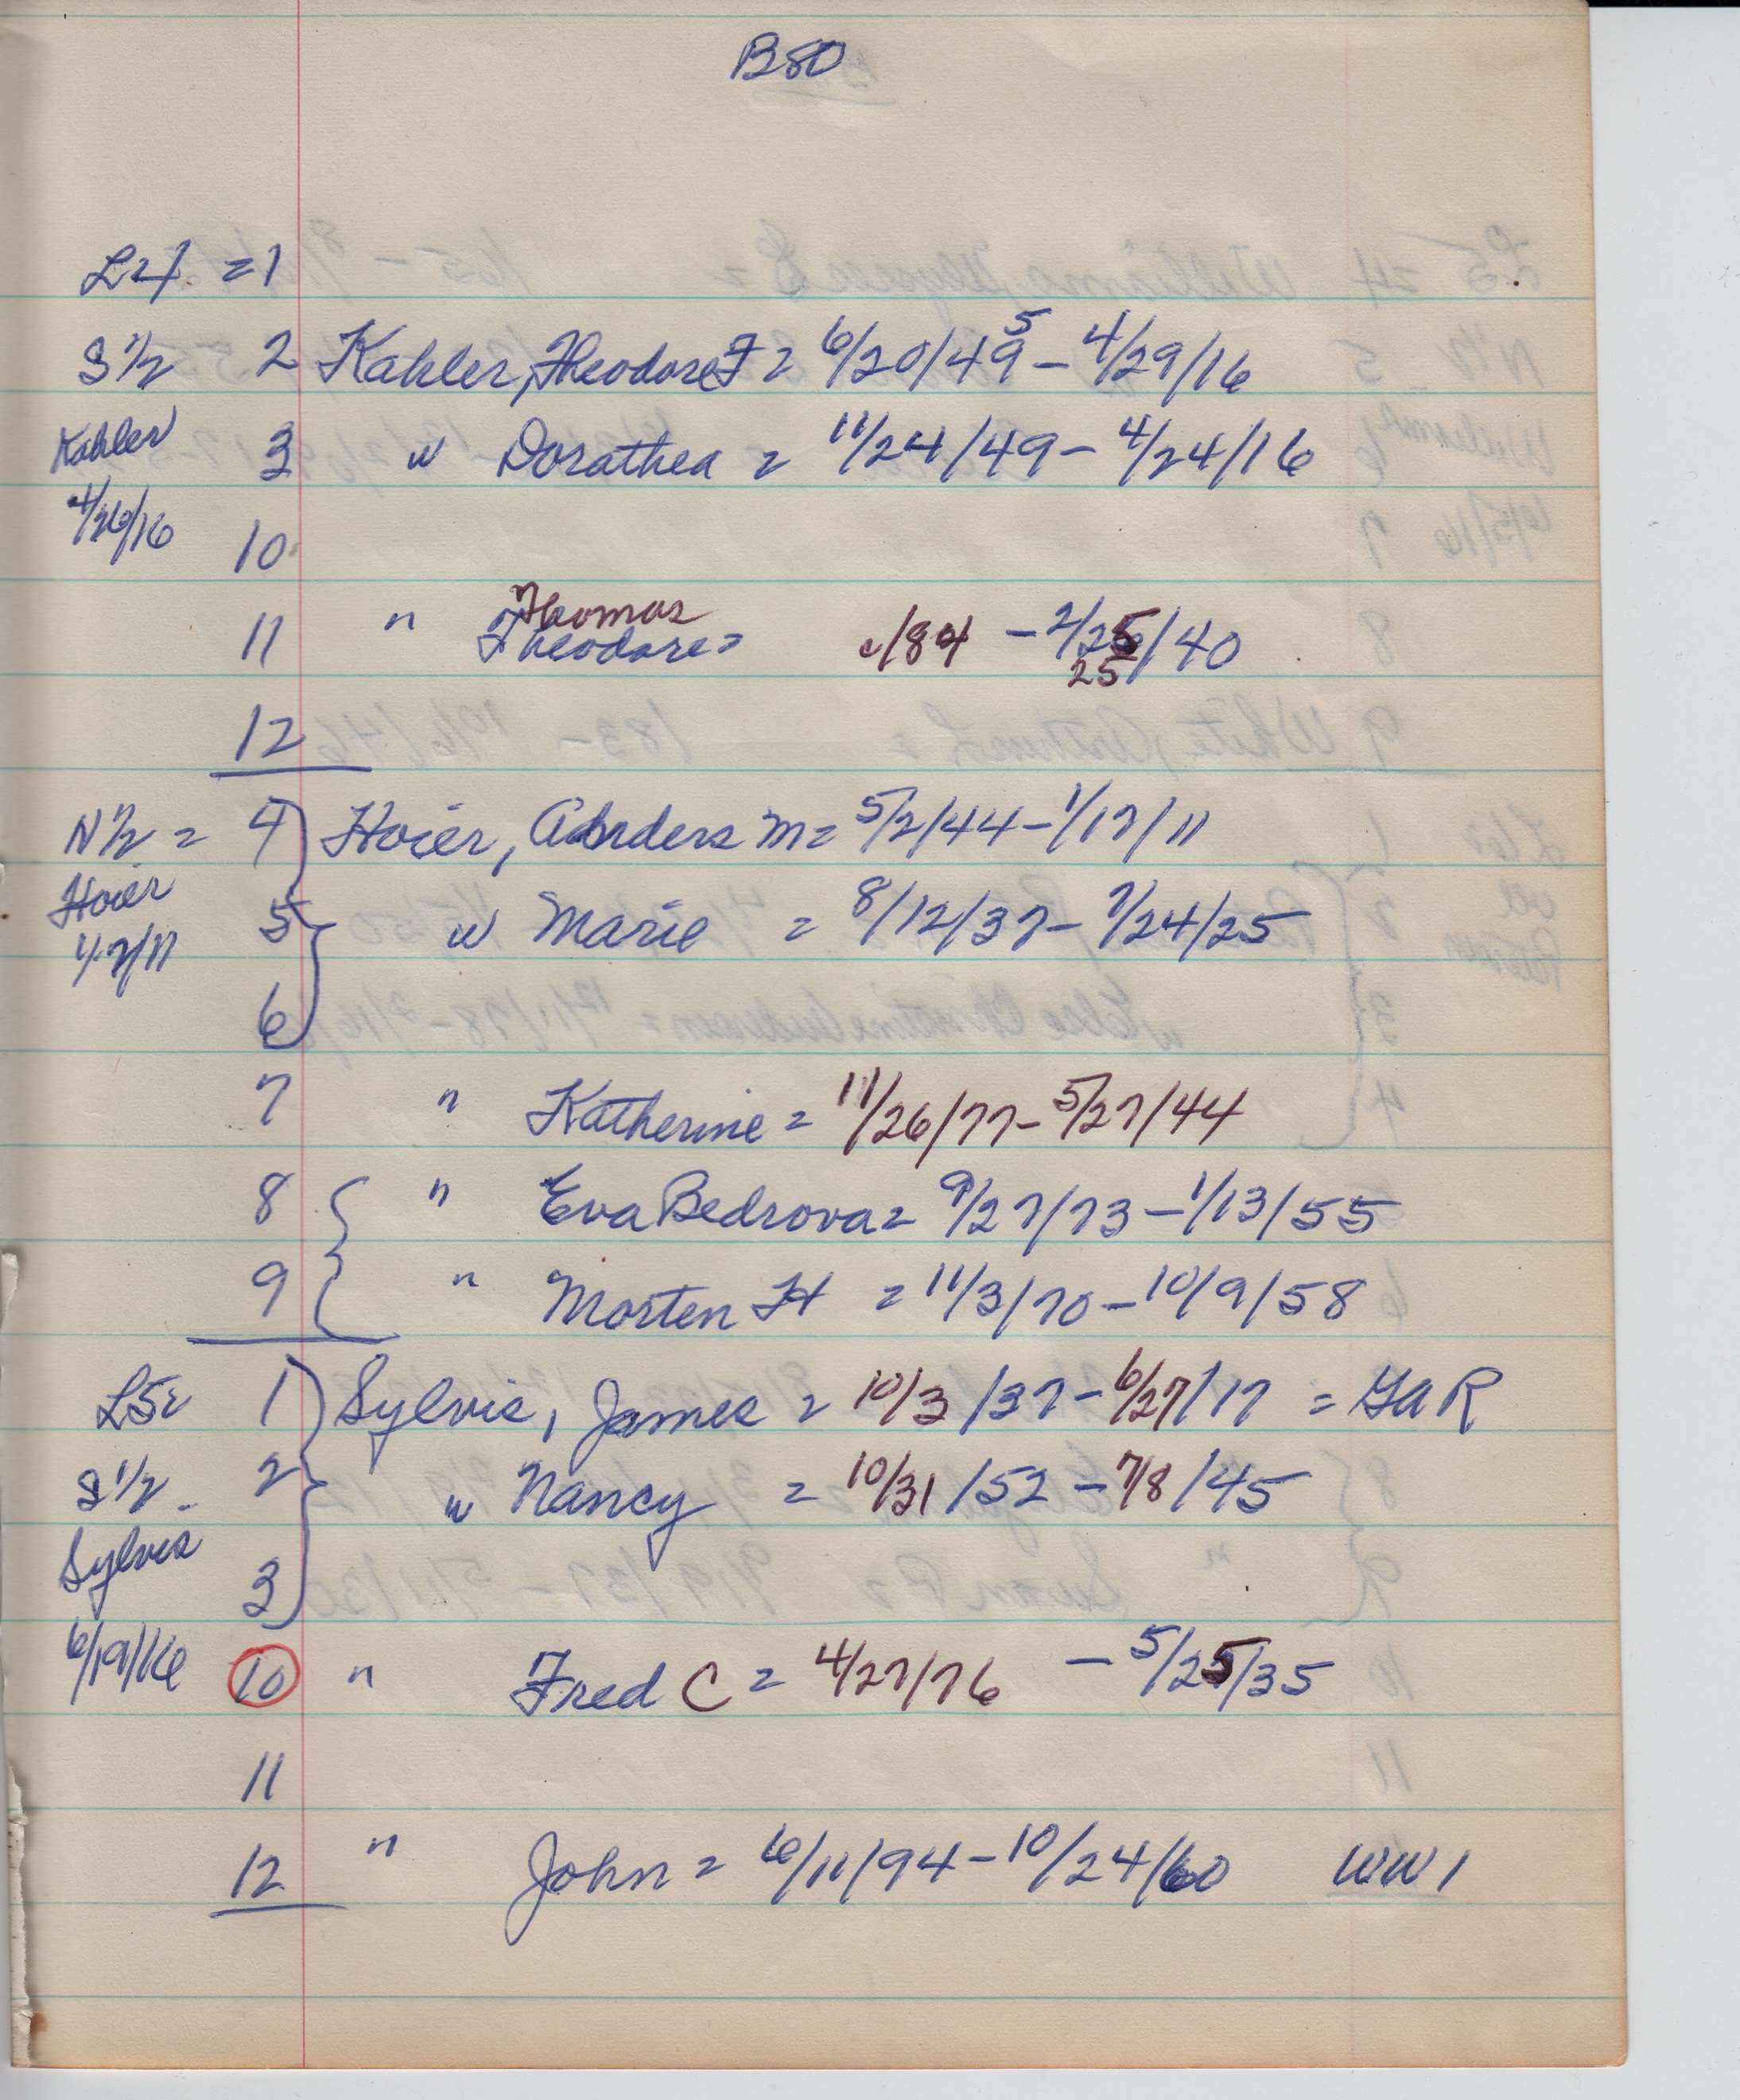 B80
L4 = 1
S 1/2 2 Kahler, Theodore F = 6/20/49 5 - 4/29/16
Kahler 3 w Dorathea = 11/24/49 - 4/24/16
4/26/16 10
11 " Thomas
Theodore = c/84 - 2/25/40
25
12
N 1/2 = 4 Hoier, Anders M = 5/2/44 - 1/17/11
Hoier 5 w Marie = 8/12/37 - 7/24/25
6
7 " Katherine = 11/26/77 - 5/27/44
8 " Eva Bedrova = 9/27/73 - 1/13/55
9 " Morten H = 11/3/70 - 10/9/58
L5 = 1 Sylvis, James = 10/3/37 - 6/27/17 = GAR
S 1/2 - 2 w Nancy = 10/31/52 - 7/8/45
Sylvis 3
6/19/16 10 " Fred C = 4/27/76 - 5/25/35
11
12 " John = 6/11/94 - 10/24/60 WW 1